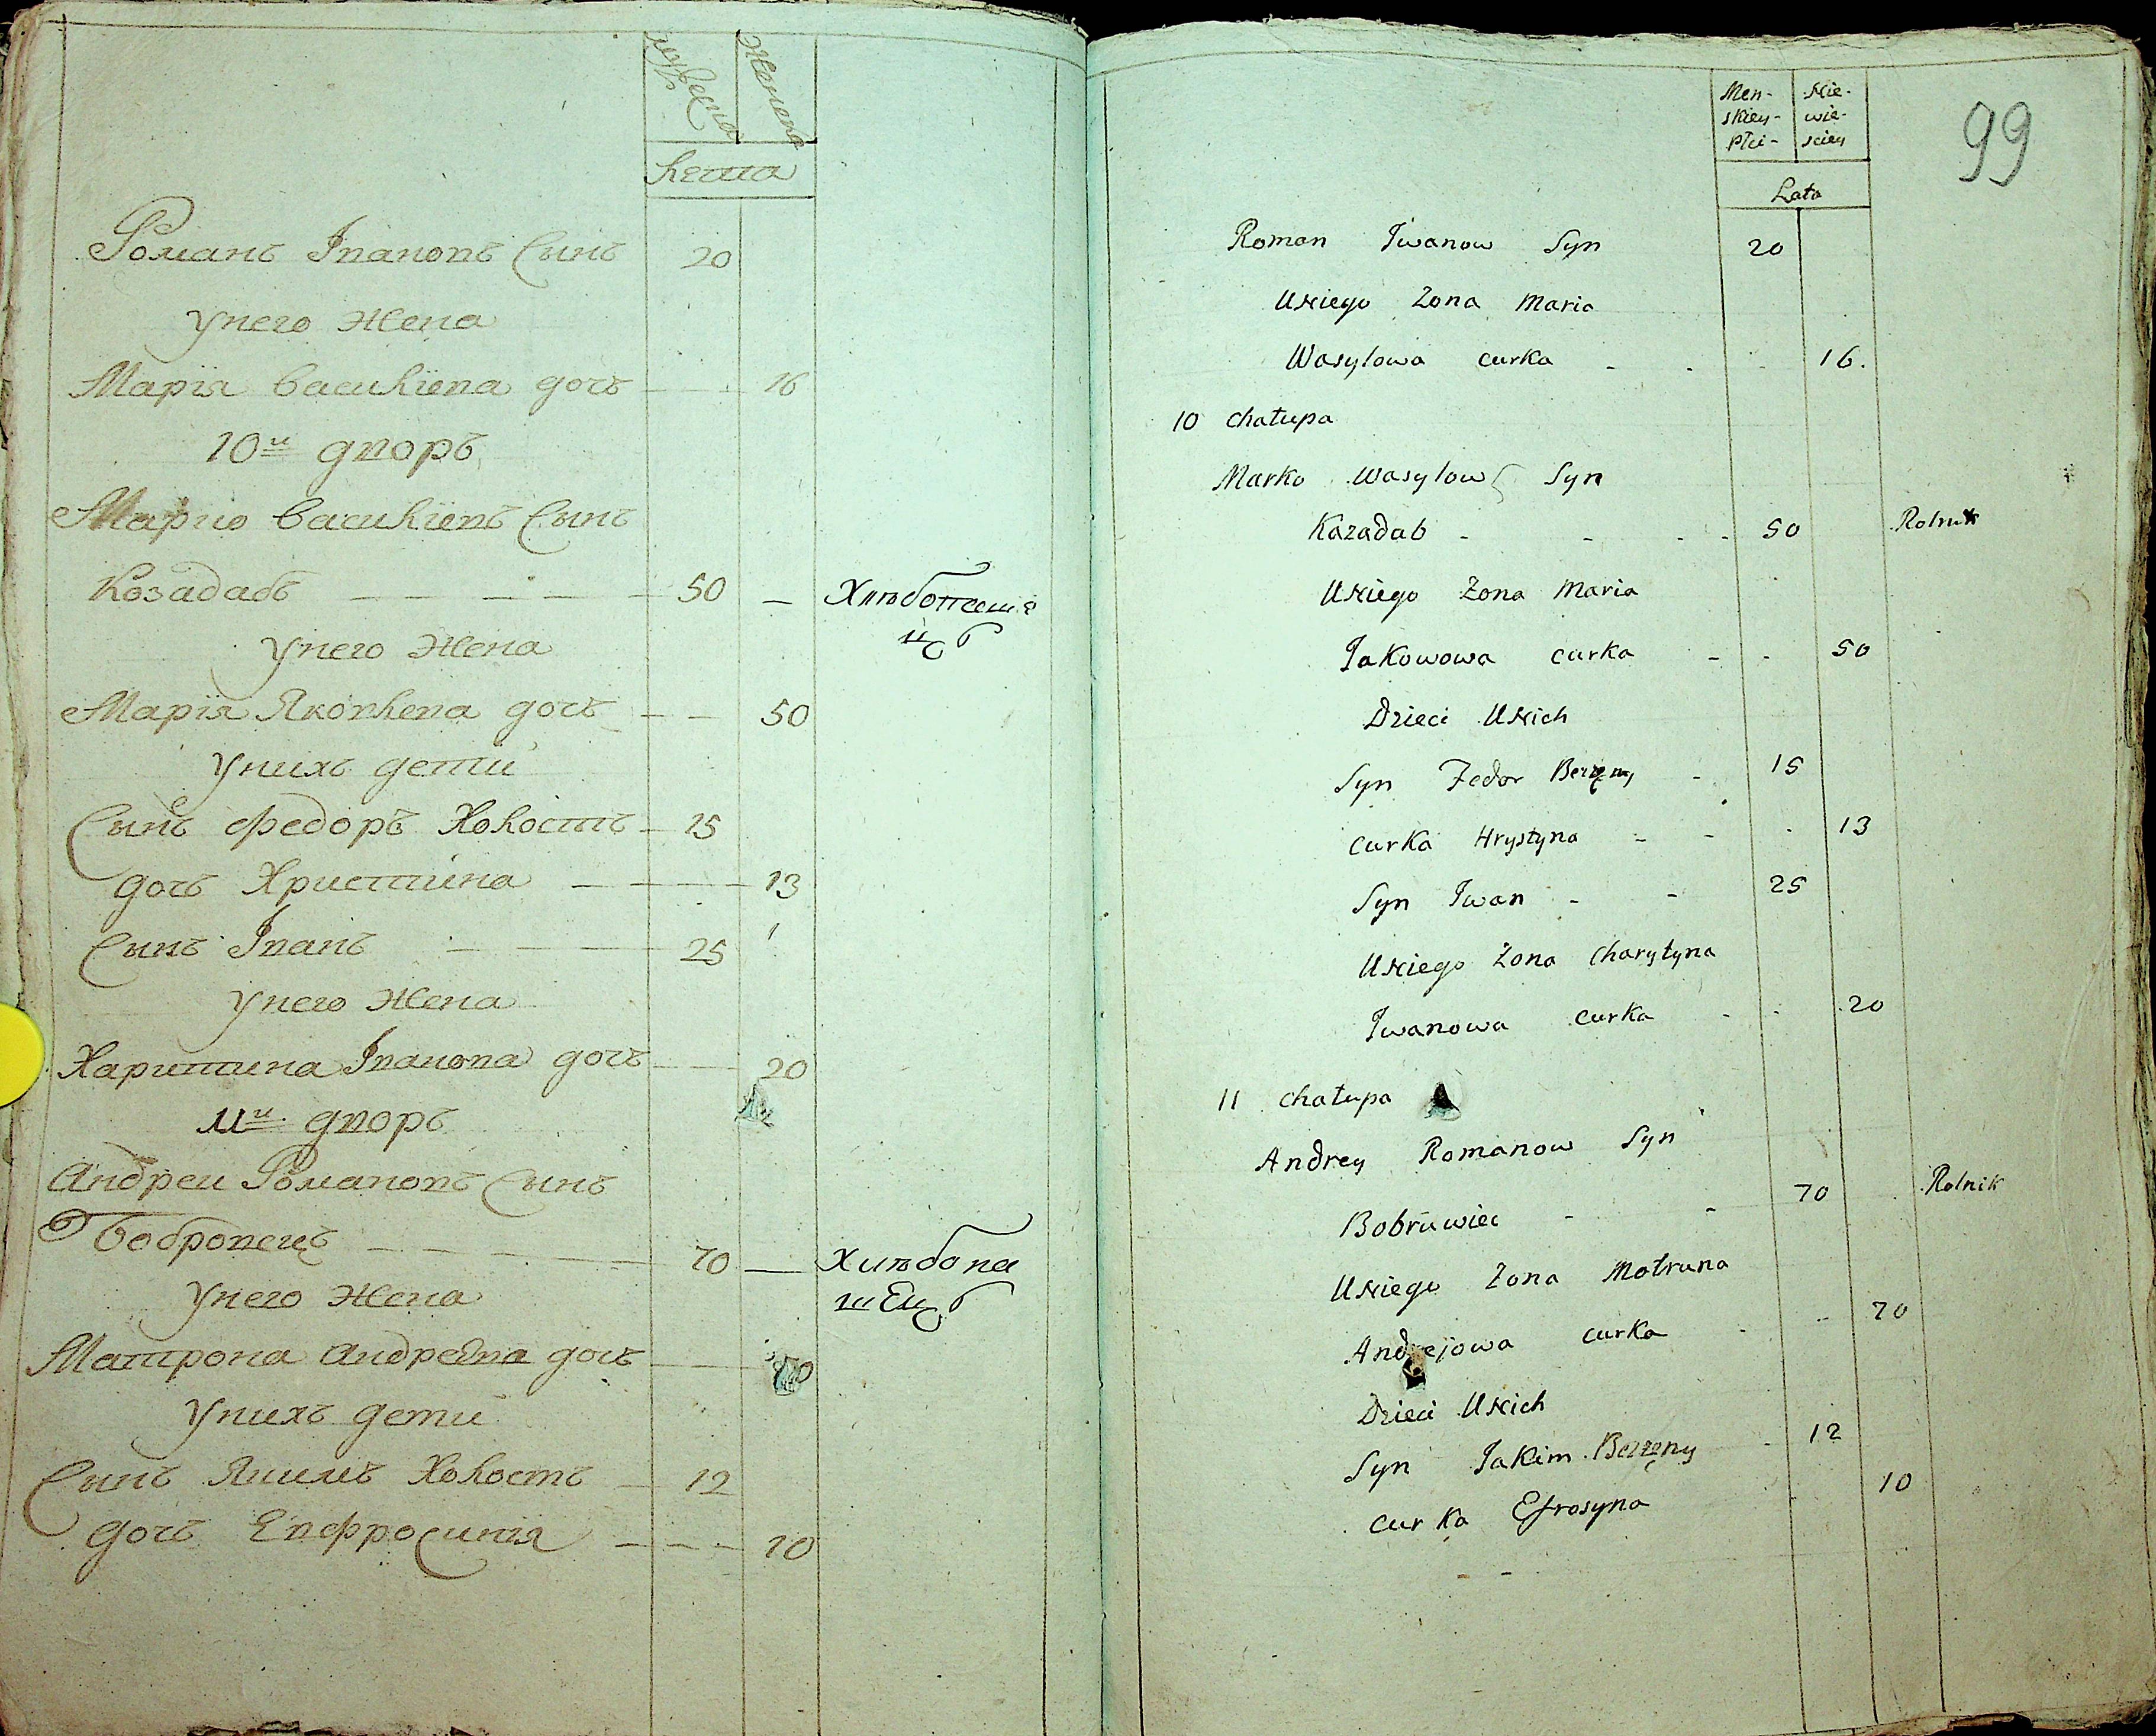 мужеска
Женска
Лета
Романъ Іванопъ Сынъ 20
Унего Жена
Марїя Василїена дочъ — — 16
10й дворъ
Марко Василїевъ Сынъ
Козадабъ — — — — 50 — Хлѣбопаше
цъ
Унего Жена
Марїя Яковлева дочъ — — 50
Унихъ дети
Сынъ Федоръ Холостъ — 15
дочъ Христина — — — 13
Сынъ Іванъ — — — 25
Унего Жена
Харитина Іванова дочъ — — 20
11й дворъ
Андреи Романовъ Сынъ
Бобровецъ — — — — 70 — Хлѣбопа
шецъ
Унего Жена
Матрона Андреевна дочъ — — 70
Унихъ дети
Сынъ Якимъ Холостъ — 12
дочъ Евфросинїя — — — 10
Men-
skiey-
Płci-
Nie-
wie-
sciey
99
Lata
Roman Iwanow Syn 20
Uniego Zona Maria
Wasylowa curka - - - 16.
10 chałupa
Marko Wasylow Syn
Kazadab - - - - 50 Rolnik
Uniego Zona Maria
Iakowowa curka - - 50
Dzieci Unich
Syn Fedor Bezzeny - 15
curka Hrystyna - - - 13
Syn Iwan - - 25
Uniego Zona Charytyna
Iwanowa curka - - 20
11 chałupa
Andrey Romanow Syn
Bobruwiec - - 70 Rolnik
Uniego Zona Motruna
Andrejowa curka - - 70
Dzieci Unich
Syn Iakim Bezzeny - 12
curka Efrosyna 10